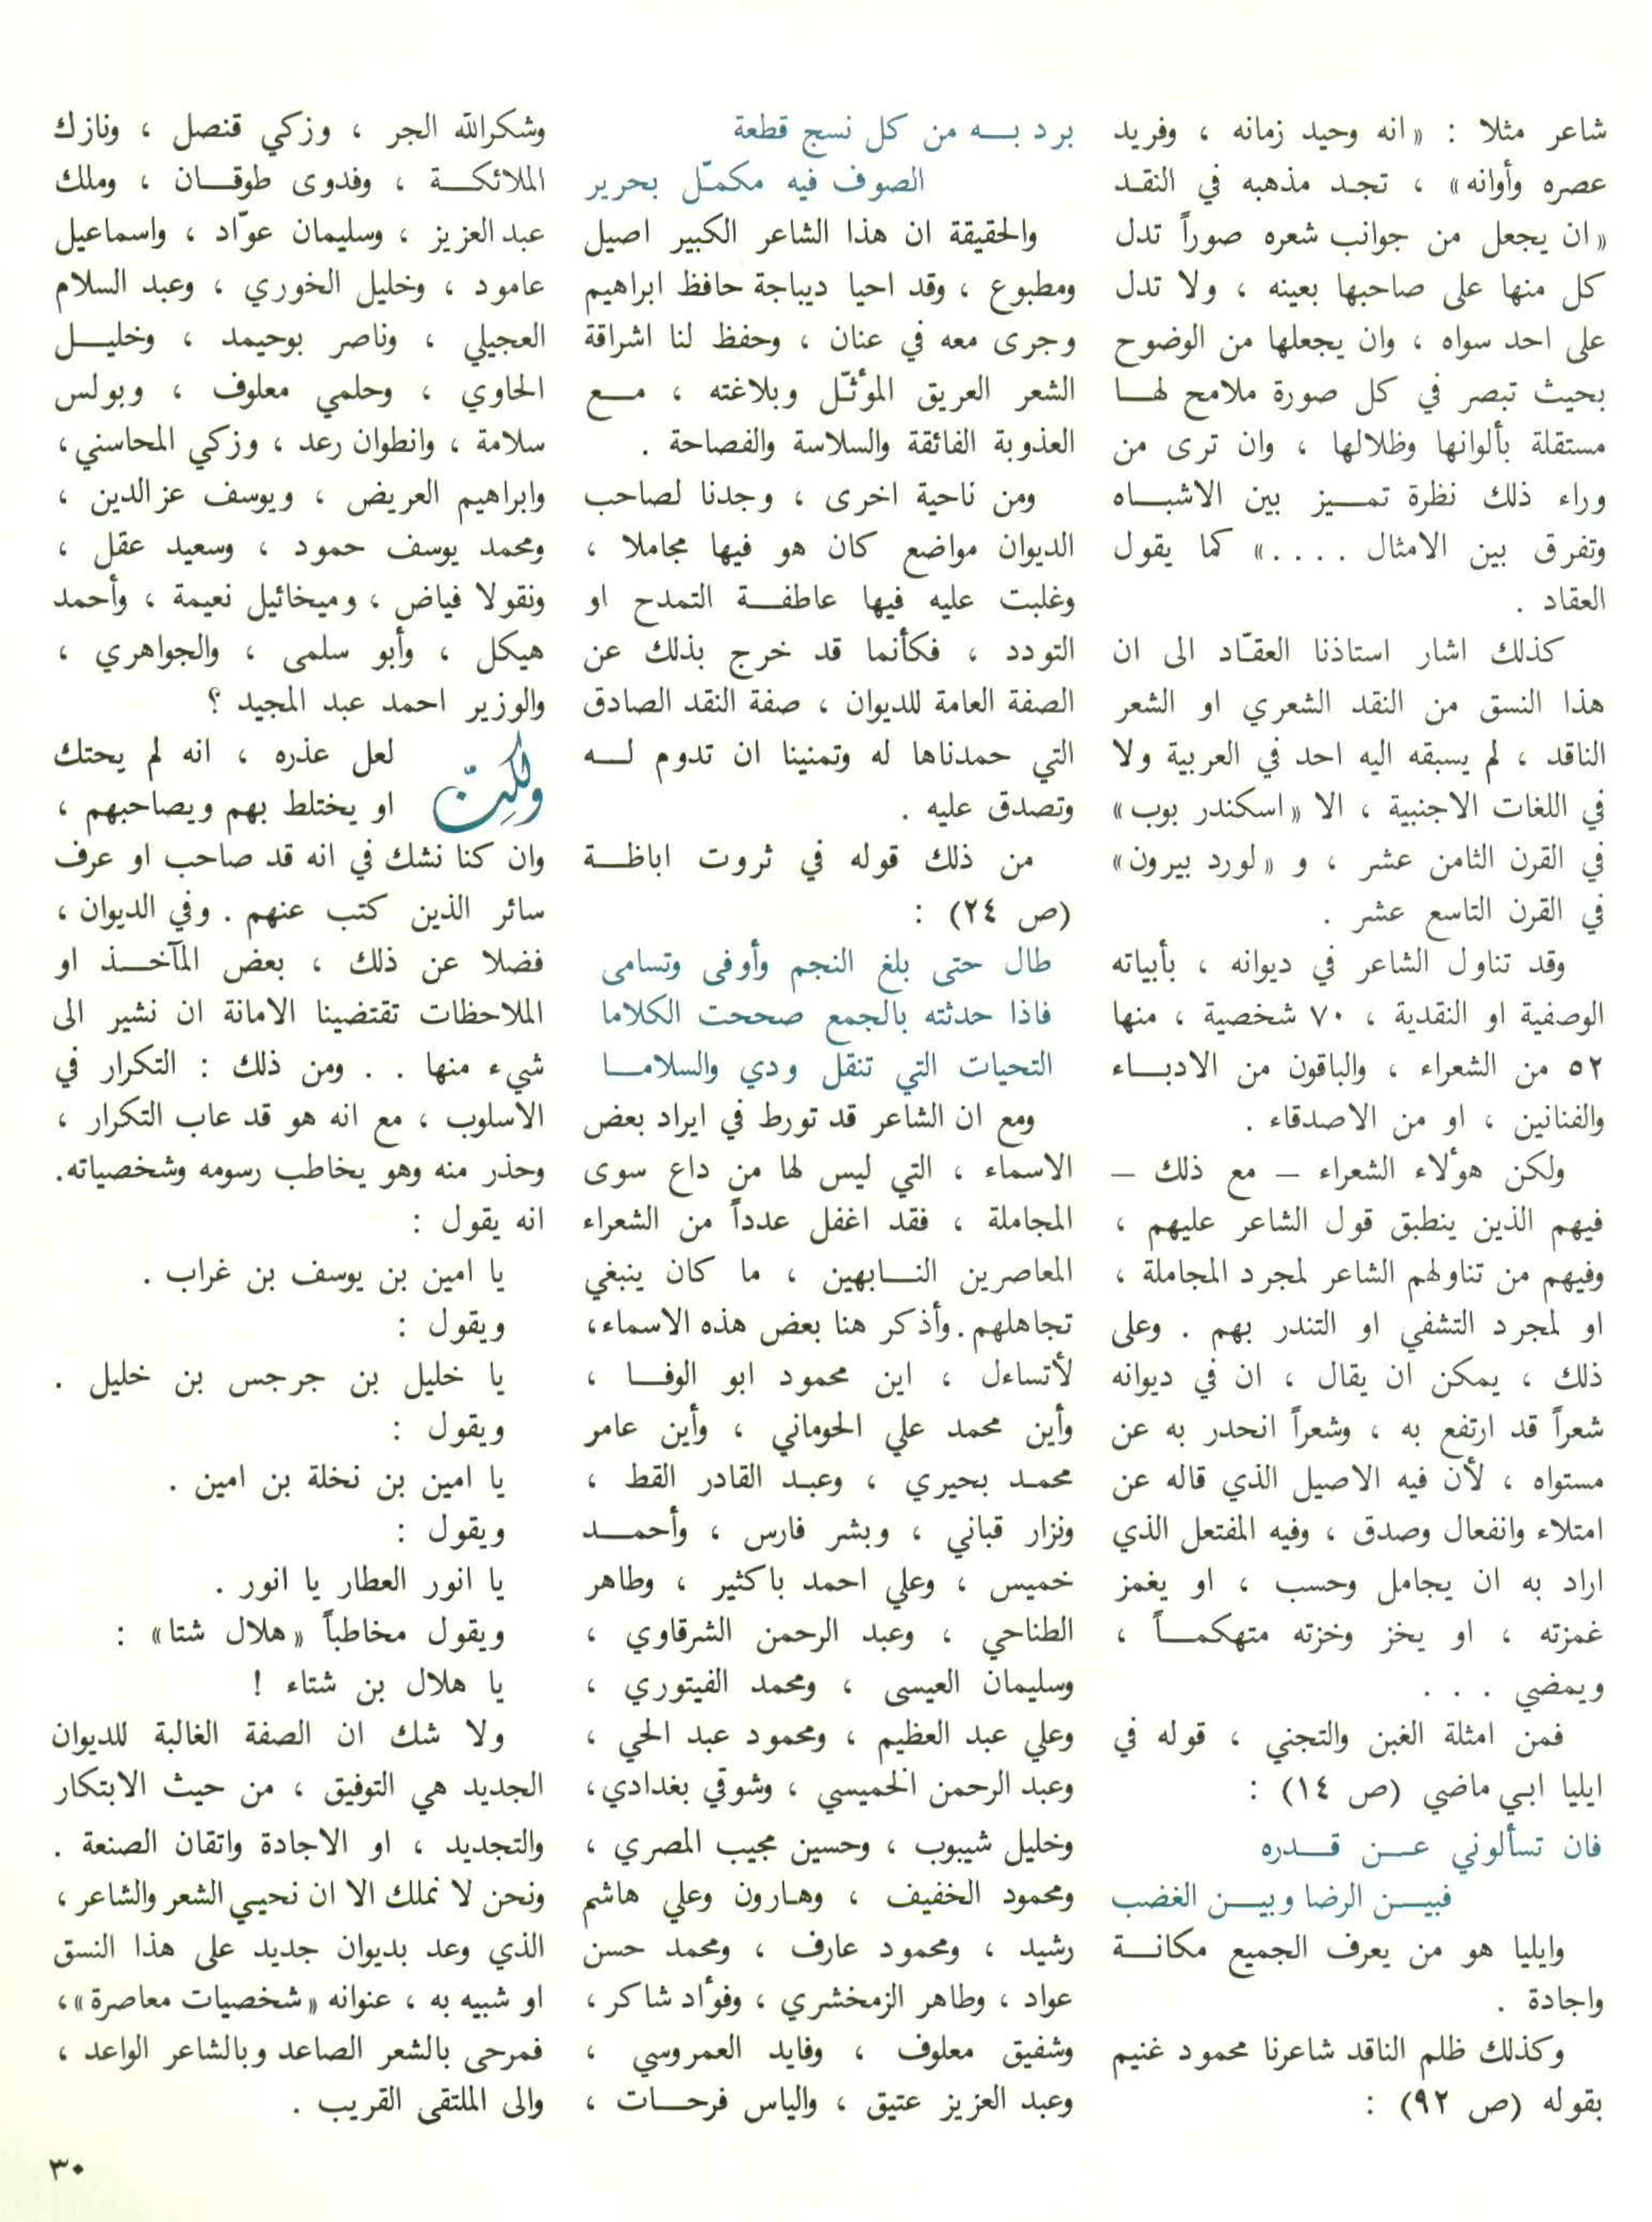 شاعر مثلا : «انه وحيد زمانه ، وفريد
عصره وأوانه» ، تجد مذهبه في النقد
«ان يجعل من جوانب شعره صوراً تدل
كل منها على صاحبها بعينه ، ولا تدل
على احد سواه ، وان يجعلها من الوضوح
بحيث تبصر في كل صورة ملامح لهـا
مستقلة بألوانها وظلالها ، وان ترى من
وراء ذلك نظرة تمـيز بين الاشبـاه
وتفرق بين الامثال . . . .» كما يقول
العقاد .
كذلك اشار استاذنا العقّاد الى ان
هذا النسق من النقد الشعري او الشعر
الناقد ، لم يسبقه اليه احد في العربية ولا
في اللغات الاجنبية ، الا «اسكندر بوب»
في القرن الثامن عشر ، و «لورد بيرون»
في القرن التاسع عشر .
وقد تناول الشاعر في ديوانه ، بأبياته
الوصفية او النقدية ، ٧٠ شخصية ، منها
٥٢ من الشعراء ، والباقون من الادبـاء
والفنانين ، او من الاصدقاء .
ولكن هؤلاء الشعراء – مع ذلك –
فيهم الذين ينطبق قول الشاعر عليهم ،
وفيهم من تناولهم الشاعر لمجرد المجاملة ،
او لمجرد التشفي او التندر بهم . وعلى
ذلك ، يمكن ان يقال ، ان في ديوانه
شعراً قد ارتفع به ، وشعراً انحدر به عن
مستواه ، لأن فيه الاصيل الذي قاله عن
امتلاء وانفعال وصدق ، وفيه المفتعل الذي
اراد به ان يجامل وحسب ، او يغمز
غمزته ، او يخز وخزته متهكمـاً ،
ويمضي . . .
فمن امثلة الغبن والتجني ، قوله في
ايليا ابي ماضي (ص ١٤) :
فان تسألوني عـن قـدره
فبيـن الرضا وبيـن الغضب
وايليا هو من يعرف الجميع مكانـة
واجادة .
وكذلك ظلم الناقد شاعرنا محمود غنيم
بقوله (ص ٩٢) :
برد بـه من كل نسج قطعة
الصوف فيه مكمّل بحرير
والحقيقة ان هذا الشاعر الكبير اصيل
ومطبوع ، وقد احيا ديباجة حافظ ابراهيم
وجرى معه في عنان ، وحفظ لنا اشراقة
الشعر العريق المؤثّل وبلاغته ، مـع
العذوبة الفائقة والسلاسة والفصاحة .
ومن ناحية اخرى ، وجدنا لصاحب
الديوان مواضع كان هو فيها مجاملا ،
وغلبت عليه فيها عاطفـة التمدح او
التودد ، فكأنما قد خرج بذلك عن
الصفة العامة للديوان ، صفة النقد الصادق
التي حمدناها له وتمنينا ان تدوم لـه
وتصدق عليه .
من ذلك قوله في ثروت اباظـة
(ص ٢٤) :
طال حتى بلغ النجم وأوفى وتسامى
فاذا حدثته بالجمع صححت الكلاما
التحيات التي تنقل ودي والسلامـا
ومع ان الشاعر قد تورط في ايراد بعض
الاسماء ، التي ليس لها من داع سوى
المجاملة ، فقد اغفل عدداً من الشعراء
المعاصرين النـابهين ، ما كان ينبغي
تجاهلهم. وأذكر هنا بعض هذه الاسماء،
لأتساءل ، اين محمود ابو الوفـا ،
وأين محمد علي الحوماني ، وأين عامر
محمـد بحيري ، وعبـد القادر القط ،
ونزار قباني ، وبشر فارس ، وأحمـد
خميس ، وعلي احمد باكثير ، وطاهر
الطناحي ، وعبد الرحمن الشرقاوي ،
وسليمان العيسى ، ومحمد الفيتوري ،
وعلي عبد العظيم ، ومحمود عبد الحي ،
وعبد الرحمن الخميسي ، وشوقي بغدادي،
وخليل شيبوب ، وحسين مجيب المصري ،
ومحمود الخفيف ، وهارون وعلي هاشم
رشيد ، ومحمود عارف ، ومحمد حسن
عواد ، وطاهر الزمخشري ، وفؤاد شاكر ،
وشفيق معلوف ، وفايد العمروسي ،
وعبد العزيز عتيق ، والياس فرحـات ،
وشكرالله الجر ، وزكي قنصل ، ونازك
الملائكـة ، وفدوى طوقـان ، وملك
عبد العزيز ، وسليمان عوّاد ، واسماعيل
عامود ، وخليل الخوري ، وعبد السلام
العجيلي ، وناصر بوحيمد ، وخليـل
الحاوي ، وحلمي معلوف ، وبولس
سلامة ، وانطوان رعد ، وزكي المحاسني ،
وابراهيم العريض ، ويوسف عز الدين ،
ومحمد يوسف حمود ، وسعيد عقل ،
ونقولا فياض ، وميخائيل نعيمة ، وأحمد
هيكل ، وأبو سلمى ، والجواهري ،
والوزير احمد عبد المجيد ؟
ولكنّ لعل عذره ، انه لم يحتك
او يختلط بهم ويصاحبهم ،
وان كنا نشك في انه قد صاحب او عرف
سائر الذين كتب عنهم . وفي الديوان ،
فضلا عن ذلك ، بعض المآخـذ او
الملاحظات تقتضينا الامانة ان نشير الى
شيء منها . . ومن ذلك : التكرار في
الاسلوب ، مع انه هو قد عاب التكرار ،
وحذر منه وهو يخاطب رسومه وشخصياته.
انه يقول :
يا امين بن يوسف بن غراب .
ويقول :
يا خليل بن جرجس بن خليل .
ويقول :
يا امين بن نخلة بن امين .
ويقول :
يا انور العطار يا انور .
ويقول مخاطباً «هلال شتا» :
يا هلال بن شتاء !
ولا شك ان الصفة الغالبة للديوان
الجديد هي التوفيق ، من حيث الابتكار
والتجديد ، او الاجادة واتقان الصنعة .
ونحن لا نملك الا ان نحيـي الشعر والشاعر ،
الذي وعد بديوان جديد على هذا النسق
او شبيه به ، عنوانه «شخصيات معاصرة»،
فمرحى بالشعر الصاعد وبالشاعر الواعد ،
والى الملتقى القريب .
٣٠